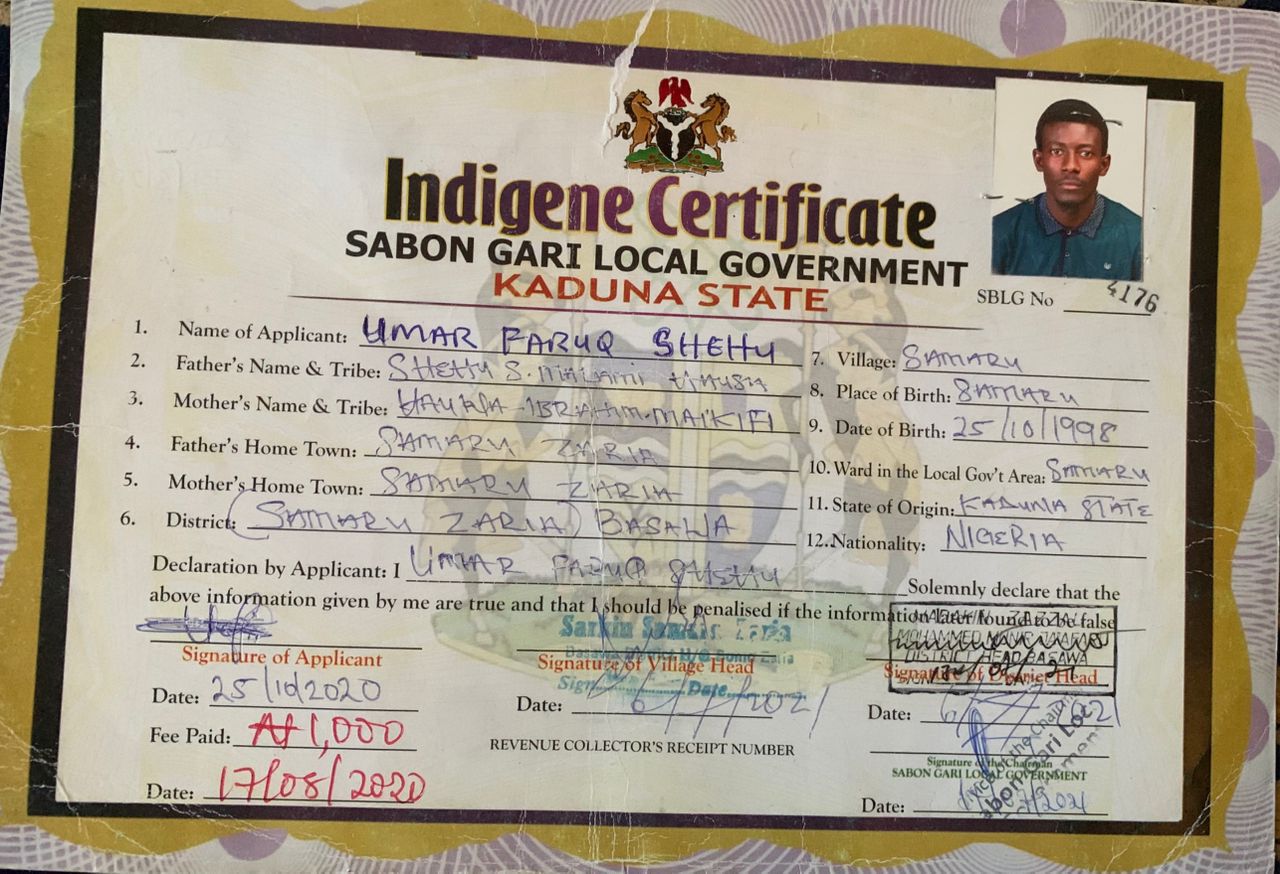 Indigene Certificate
SABON GARI LOCAL GOVERNMENT
KADUNA STATE
SBLG No 4176
1. Name of Applicant: UMAR FARUQ SHEHU
2. Father's Name & Tribe: SHEHU S. MALAMI HAUSA
3. Mother's Name & Tribe: IBRAHIM MAIKIFI
4. Father's Home Town: SAMARU ZARIA
5. Mother's Home Town: SAMARU ZARIA
6. District: (SAMARU ZARIA) BASAWA
7. Village: SAMARU
8. Place of Birth: SAMARU
9. Date of Birth: 25/10/1998
10. Ward in the Local Gov't Area: SAMARU
11. State of Origin: KADUNA STATE
12. Nationality: NIGERIA
Declaration by Applicant: I UMAR FARUQ SHEHU Solemnly declare that the
above information given by me are true and that I should be penalised if the information later found to be false
Sarkin Samaru Zaria
MOHAMMED
DISTRICT HEAD BASAWA
Signature of Applicant
Signature of Village Head
Signature of District Head
Sign Date
Date: 25/10/2020
Date: 2021
Date:
Fee Paid: ₦1,000
REVENUE COLLECTOR'S RECEIPT NUMBER
Signature of the Chairman
SABON GARI LOCAL GOVERNMENT
Date: 17/08/2020
Date: 2021